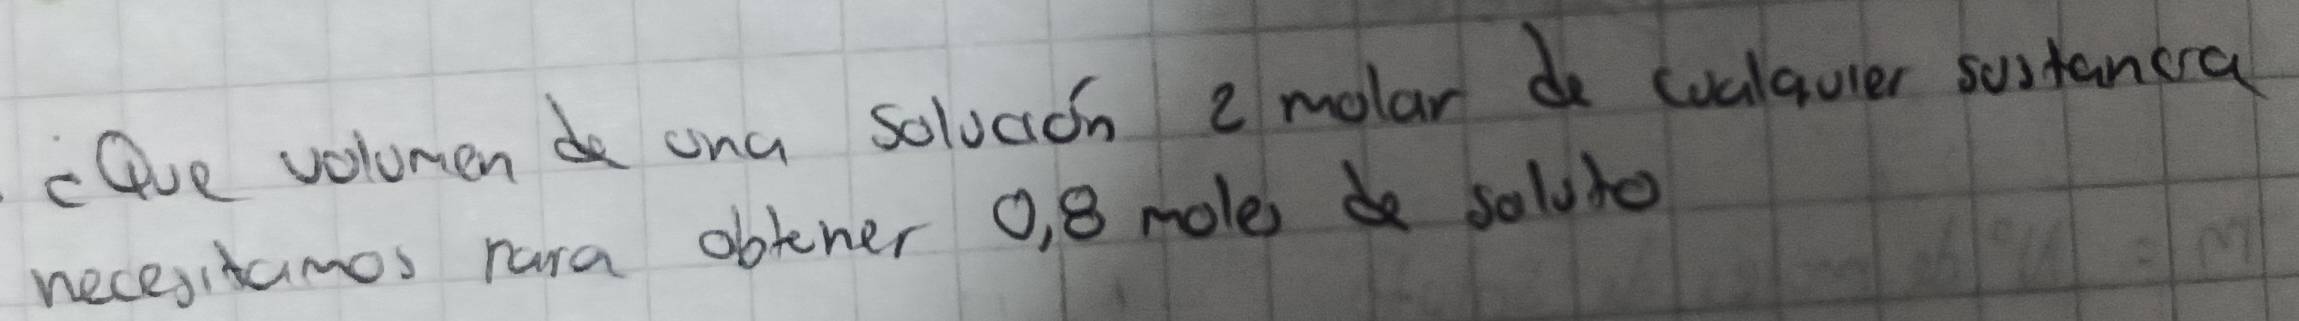 ¿Que volumen de una solución 2 molar de cualquier sustancia
necesitamos para obtener 0,8 moles de soluto